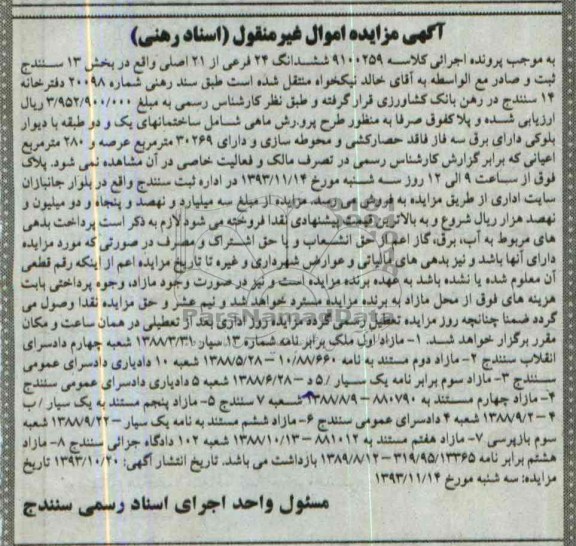 آگهی مزایده اموال غیرمنقول (اسناد رهنی)
به موجب پرونده اجرائی کلاسه ۹۱۰۰۲۵۹ ششدانگ ۲۴ فرعی از ۲۱ اصلی واقع در بخش ۱۳ سنندج
ثبت و صادر مع الواسطه به آقای خالد نیکخواه منتقل شده است طبق سند رهنی شماره ۲۰۰۹۸ دفترخانه
۱۴ سنندج در رهن بانک کشاورزی قرار گرفته و طبق نظر کارشناس رسمی به مبلغ ۳/۹۵۲/۹۰۰/۰۰۰ ریال
ارزیابی شده و پلاکفوق صرفا به منظور طرح پرورش ماهی شامل ساختمانهای یک و دو طبقه با دیوار
بلوکی دارای برق سه فاز فاقد حصارکشی و محوطه سازی و دارای ۳۰۲۶۹ مترمربع عرصه و ۲۸۰ مترمربع
اعیانی که برابر گزارش کارشناس رسمی در تصرف مالک و فعالیت خاصی در آن مشاهده نمی شود. پلاک
فوق از ساعت ۹ الی ۱۲ روز سه شنبه مورخ ۱۳۹۳/۱۱/۱۴ در اداره ثبت سنندج واقع در بلوار جانبازان
سایت اداری از طریق مزایده به فروش می رسد. مزایده از مبلغ سه میلیارد و نهصد و پنجاه و دو میلیون و
نهصد هزار ریال شروع و به بالاترین قیمت پیشنهادی نقدا فروخته می شود لازم به ذکر است پرداخت بدهی
های مربوط به آب، برق، گاز اعم از حق انشعاب و یا حق اشتراک و مصرف در صورتی که مورد مزایده
دارای آنها باشد و نیز بدهی های مالیاتی و عوارض شهرداری و غیره تا تاریخ مزایده اعم از اینکه رقم قطعی
آن معلوم شده یا نشده باشد به عهده برنده مزایده است و نیز در صورت وجود مازاد، وجوه پرداختی بابت
هزینه های فوق از محل مازاد به برنده مزایده مسترد خواهد شد و نیم عشر و حق مزایده نقدا وصول می
گردد ضمنا چنانچه روز مزایده تعطیل رسمی گردد مزایده روز اداری بعد از تعطیلی در همان ساعت و مکان
مقرر برگزار خواهد شد. ۱- مازاد اول ملک برابر نامه شماره ۱۳ سیار - ۱۳۸۸/۳/۳۱ شعبه چهارم دادسرای
انقلاب سنندج ۲- مازاد دوم مستند به نامه ۱۰/۸۸/۶۶۰ - ۱۳۸۸/۵/۲۸ شعبه ۱۰ دادیاری دادسرای عمومی
سنندج ۳- مازاد سوم برابر نامه یک سیار /۵ د - ۱۳۸۸/۶/۲۸ شعبه ۵ دادیاری دادسرای عمومی سنندج
۴- مازاد چهارم مستند به ۸۸۰۷۹۰ - ۱۳۸۸/۸/۹ شعبه ۷ سنندج ۵- مازاد پنجم مستند به یک سیار /ب
۴ - ۱۳۸۸/۹/۲ شعبه ۴ دادسرای عمومی سنندج ۶- مازاد ششم مستند به نامه یک سیار - ۱۳۸۸/۹/۲۲ شعبه
سوم بازپرسی ۷- مازاد هفتم مستند به ۸۸۱۰۱۲ - ۱۳۸۸/۱۰/۱۳ شعبه ۱۰۲ دادگاه جزائی سنندج ۸- مازاد
هشتم برابر نامه ۳۱۹/۹۵/۱۳۳۶۵ - ۱۳۸۹/۸/۱۲ بازداشت می باشد. تاریخ انتشار آگهی: ۱۳۹۳/۱۰/۲۰ تاریخ
مزایده: سه شنبه مورخ ۱۳۹۳/۱۱/۱۴
مسئول واحد اجرای اسناد رسمی سنندج
ParsNamadData